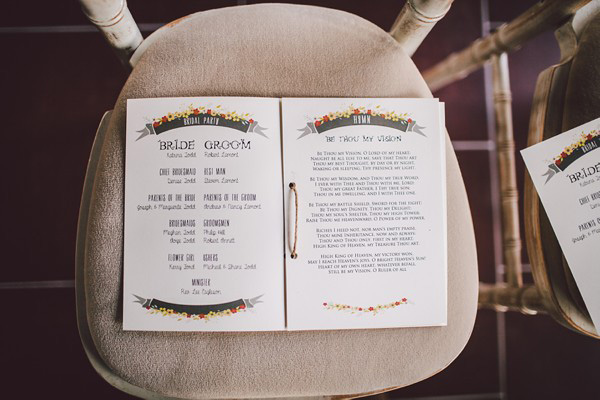 BRIDAL PARTY
BRIDE GROOM
Katrina Dodd Robert Lamont
CHIEF BRIDESMAID BEST MAN
Denise Dodd Steven Lamont
PARENTS OF THE BRIDE PARENTS OF THE GROOM
& Margaret Dodd Andrew & Lamont
BRIDESMAIDS GROOMSMEN
Meghan Dodd Philip
Robert
FLOWER GIRL USHERS
Dodd Michael & Shane Dodd
MINISTER
Rev Lee
HYMN
BE THOU MY VISION
BE THOU MY VISION, O LORD OF MY HEART;
NAUGHT BE ALL ELSE TO ME, SAVE THAT THOU ART
THOU MY BEST THOUGHT, BY DAY OR BY NIGHT,
WAKING OR SLEEPING, THY PRESENCE MY LIGHT.
BE THOU MY WISDOM, AND THOU MY TRUE WORD;
I EVER WITH THEE AND THOU WITH ME, LORD;
THOU MY GREAT FATHER, I THY TRUE SON;
THOU IN ME DWELLING, AND I WITH THEE ONE.
BE THOU MY BATTLE SHIELD, SWORD FOR THE FIGHT;
BE THOU MY DIGNITY, THOU MY DELIGHT;
THOU MY SOUL'S SHELTER, THOU MY HIGH TOWER:
RAISE THOU ME HEAVENWARD, O POWER OF MY POWER.
RICHES I HEED NOT, NOR MAN'S EMPTY PRAISE,
THOU MINE INHERITANCE, NOW AND ALWAYS:
THOU AND THOU ONLY, FIRST IN MY HEART,
HIGH KING OF HEAVEN, MY TREASURE THOU ART.
HIGH KING OF HEAVEN, MY VICTORY WON,
MAY I REACH HEAVEN'S JOYS, O BRIGHT HEAVEN'S SUN!
HEART OF MY OWN HEART, WHATEVER BEFALL,
STILL BE MY VISION, O RULER OF ALL.
BRIDAL
BRIDE